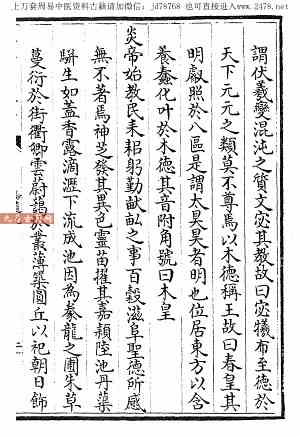 上万套周易中医资料古籍请加微信：jd78768 也可进入 www.2478.net
謂伏羲變混沌之質文宓其教故曰宓犧布至德於
天下元元之類莫不尊焉以木德稱王故曰春皇其
明叡照於八區是謂太昊昊者明也位居東方以含
養蠢化叶於木德其音附角號曰木皇
炎帝始教民耒耜躬勤畎畝之事百穀滋阜聖德所感
無不著焉神芝發其異色靈苗擢其嘉穎陸池丹蕖
駢生如蓋香露滴瀝下流成池因為豢龍之圃朱草
蔓衍於街衢卿雲蔚藹於叢薄築圓丘以祀朝日飾
二